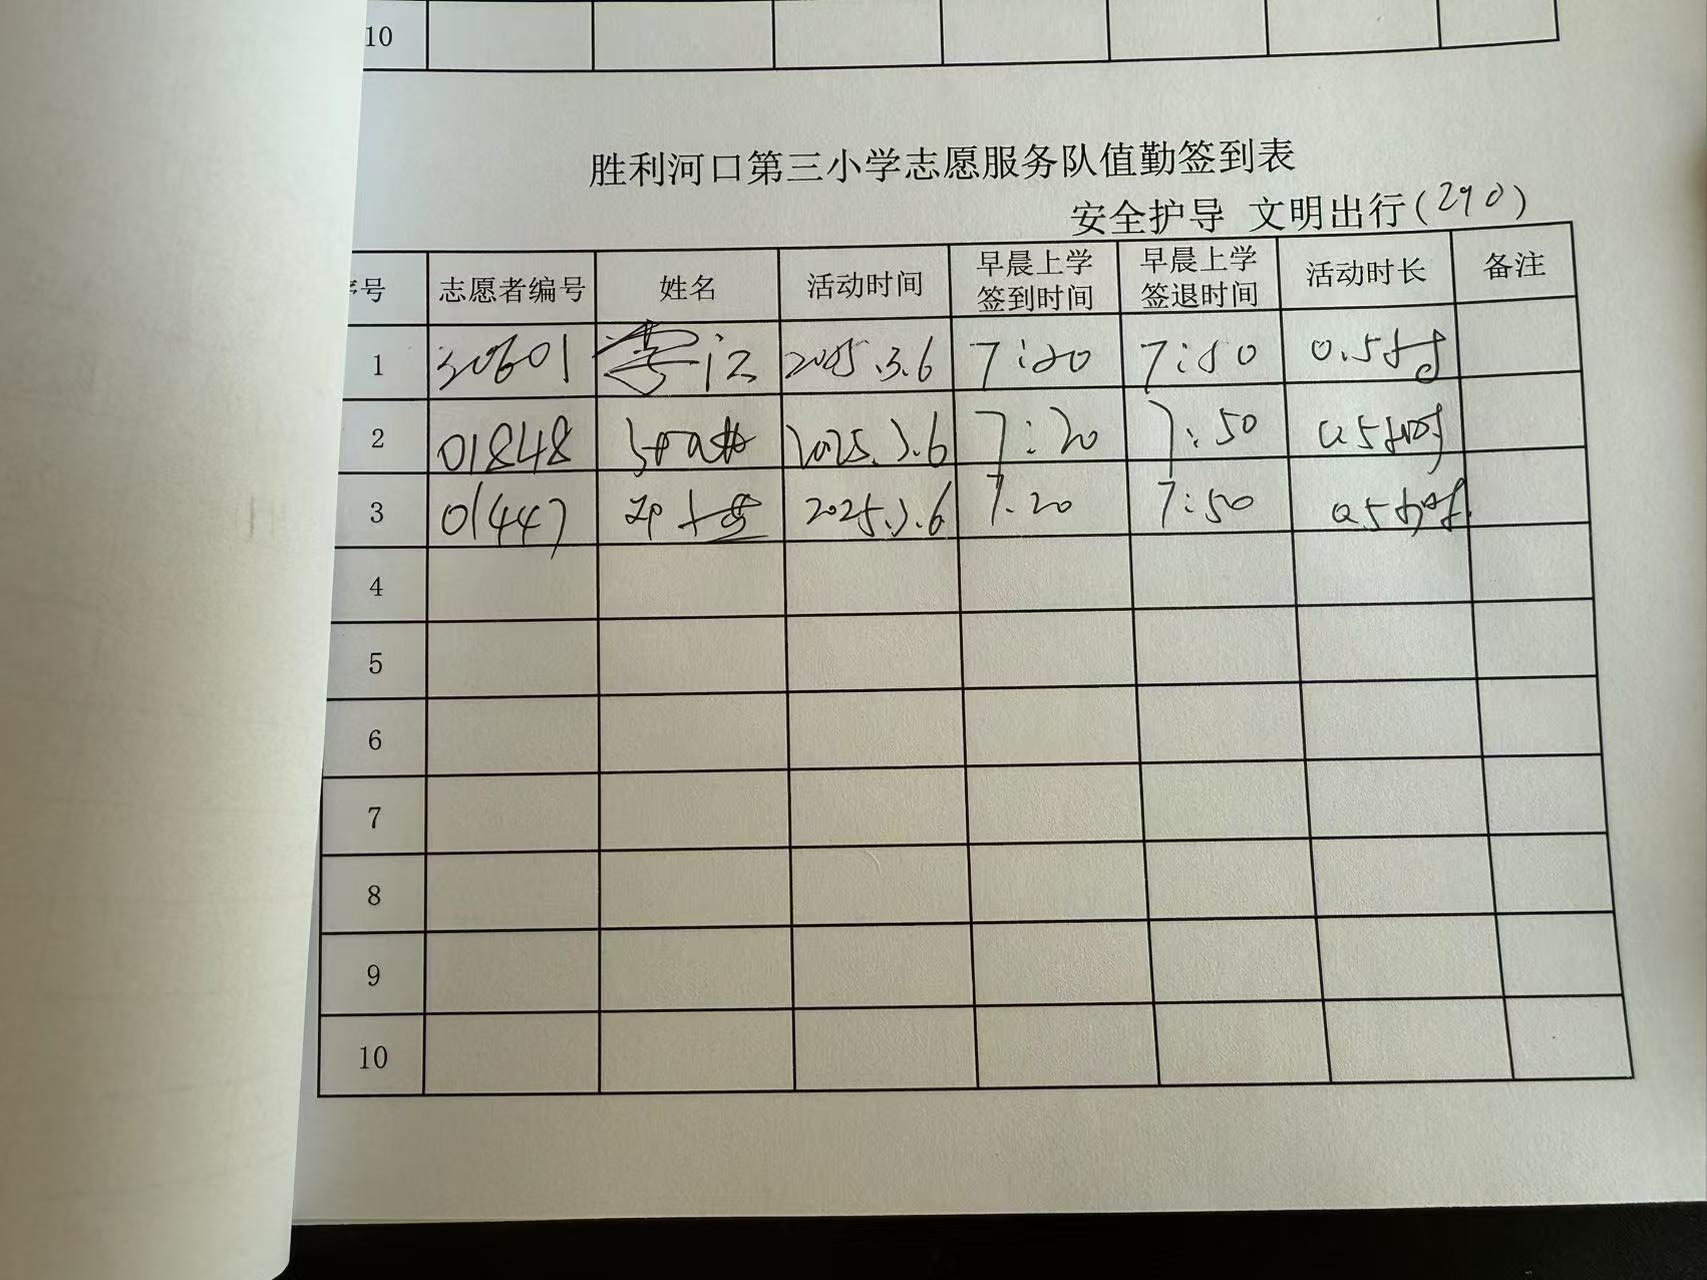 10
胜利河口第三小学志愿服务队值勤签到表
安全护导 文明出行(290)
序号 志愿者编号 姓名 活动时间 早晨上学签到时间 早晨上学签退时间 活动时长 备注
1 30601 2025.3.6 7:20 7:50 0.5小时
2 01848 2025.3.6 7:20 7:50 0.5小时
3 01447 2025.3.6 7:20 7:50 0.5小时
4
5
6
7
8
9
10